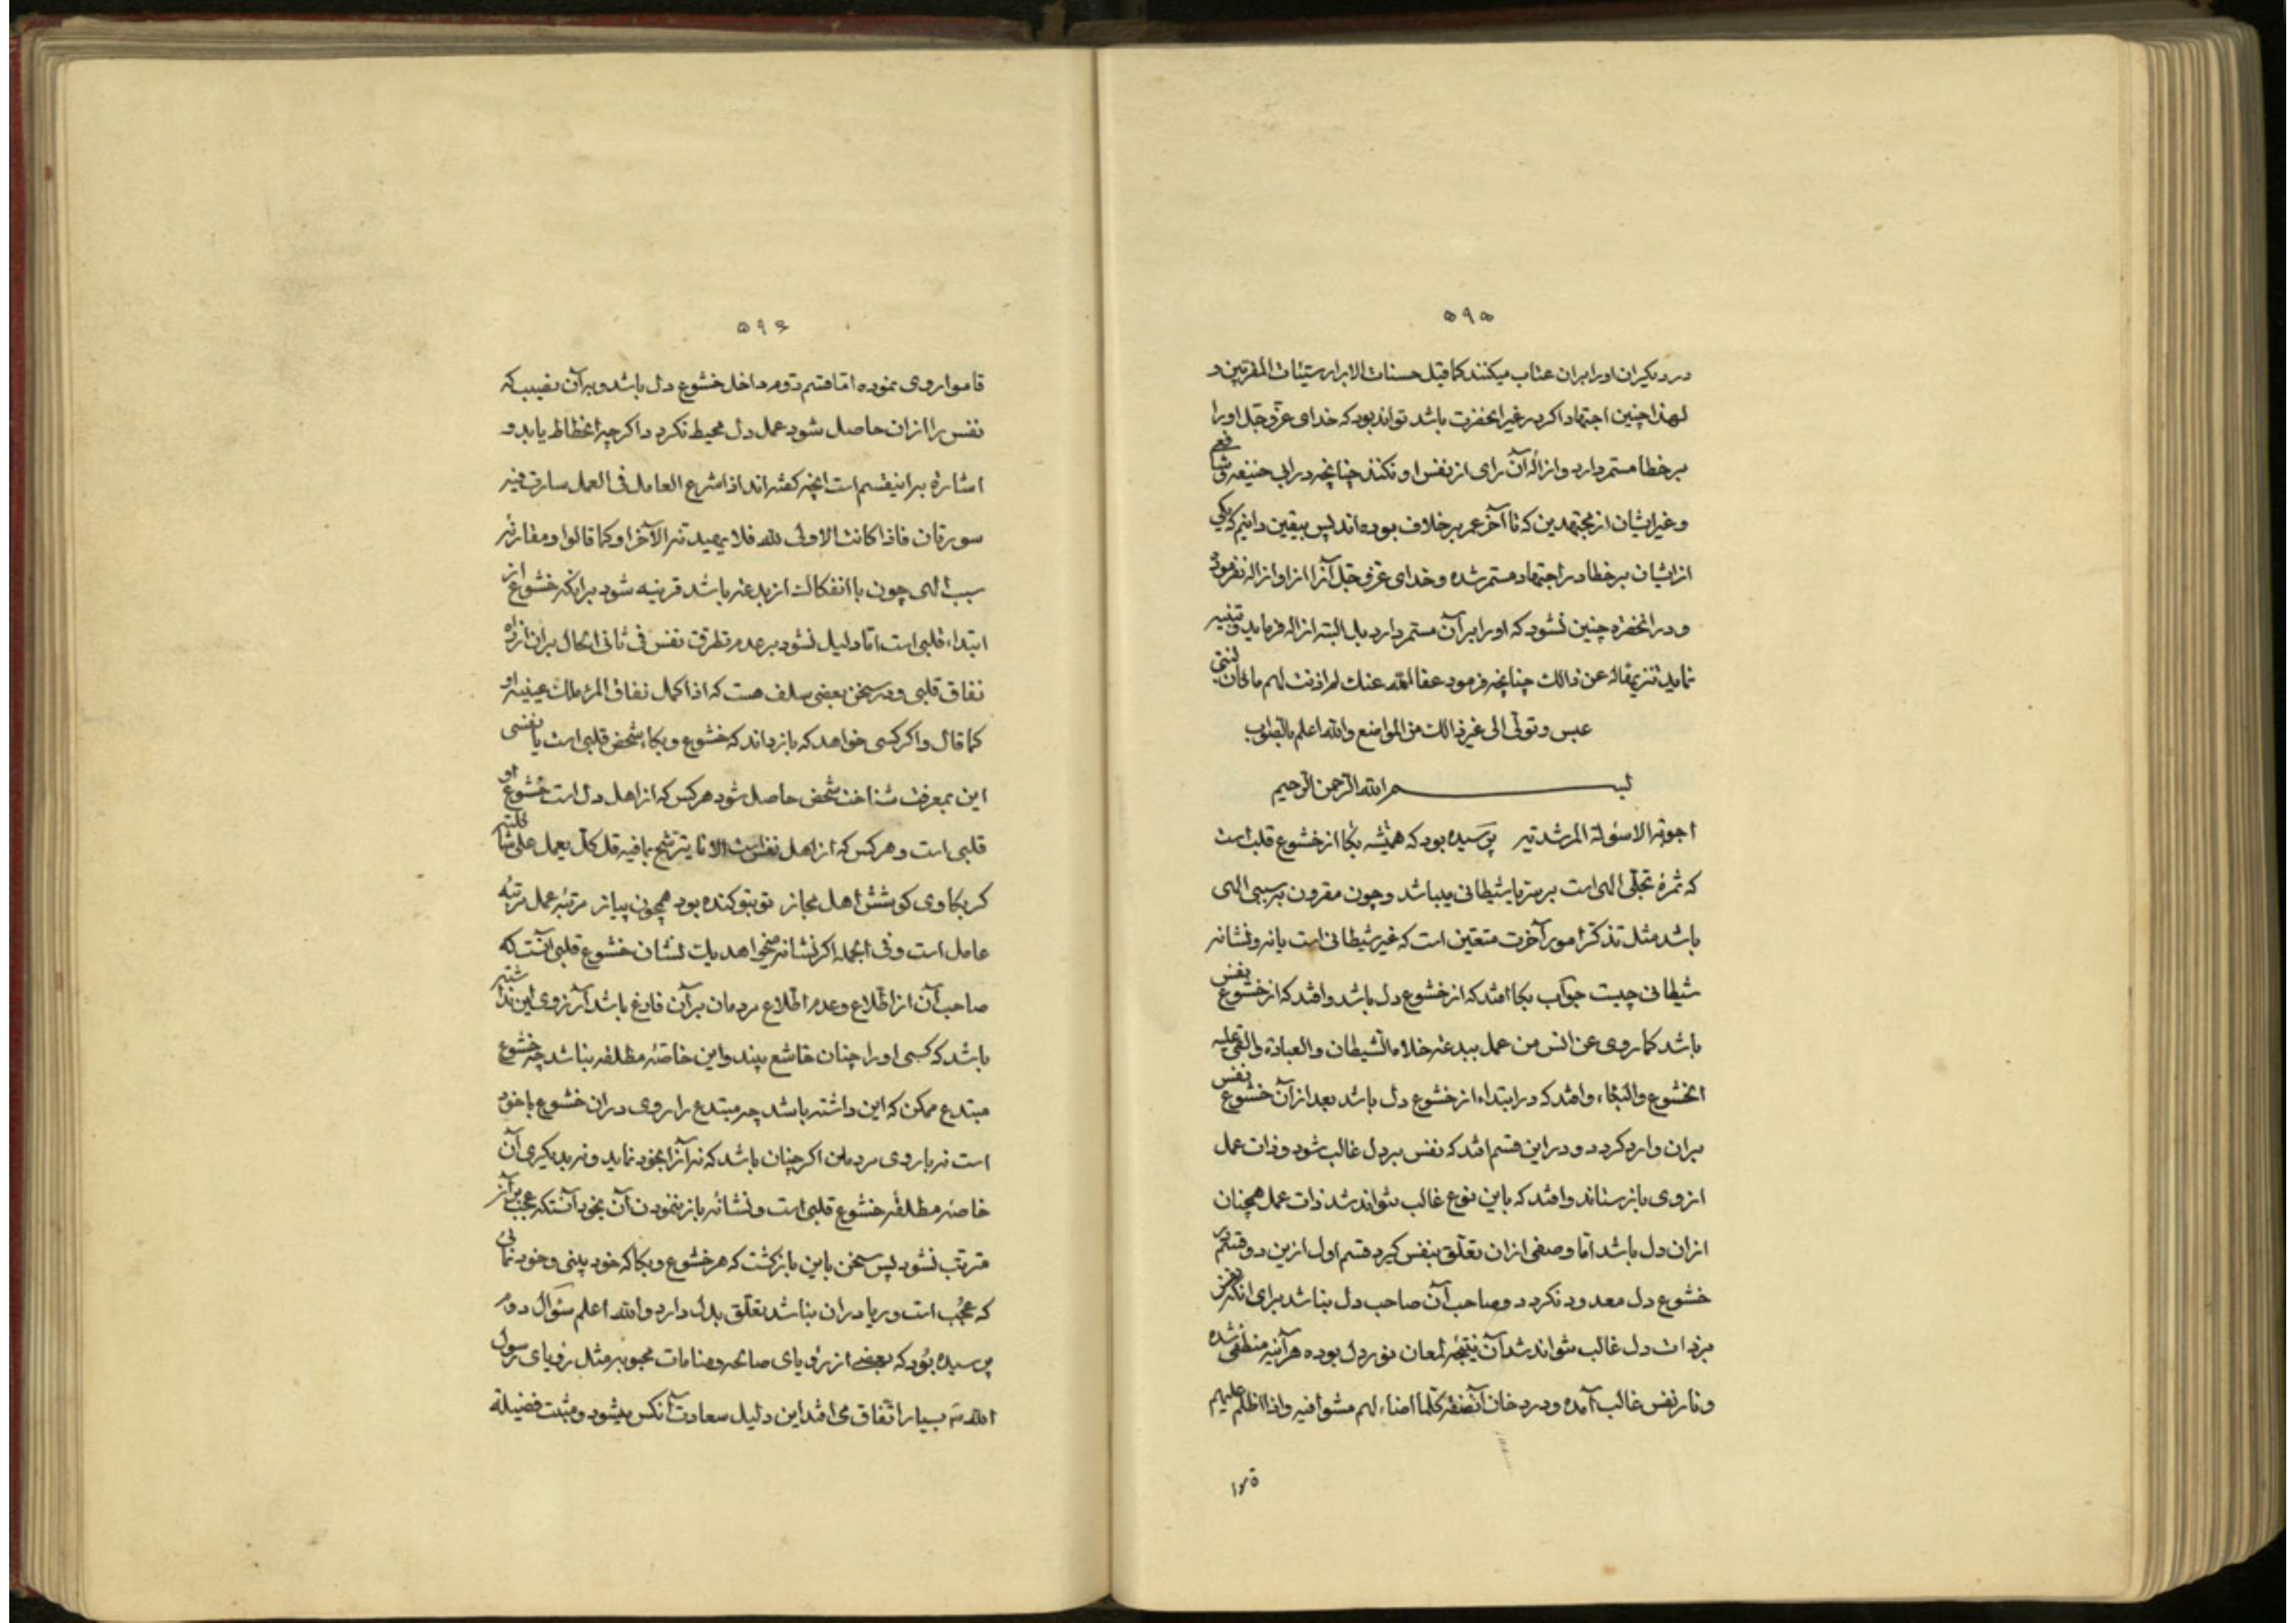 ۵۹۵
در دیگران اورا بران عتاب میکنند کما قیل حسنات الابرار سیئات المقربین و
لهذا چنین اجتهاد اکر در غیر انحضرت باشد تواند بود که خدای عز و جل اورا
بر خطا مستمر دارد و ازالهٔ آن رای از نفس او نکند چنانچه در ابی حنیفه و شافعی
و غیر ایشان از مجتهدین که تا آخر عمر بر خلاف بوده‌اند پس بیقین دانیم که یکی
از ایشان بر خطا در اجتهاد مستمر شده و خدای عز و جل آنرا ازو ازاله نفرموده
و در انحضرة چنین نشود که اورا بر آن مستمر دارد بل البته ازاله فرماید و تنبیه
نماید تنزیها له عن ذالک چنانچه فرمود عفا الله عنک لم اذنت لهم ما کان لنبی
عبس و تولی الی غیر ذالک من المواضع والله اعلم بالصواب
بسم الله الرحمن الرحیم
اجوبة الاسئولة المرشدیه پرسیده بود که همیشه بکا از خشوع قلب است
که ثمرهٔ تجلی الهی است بر سر یا شیطانی میباشد و چون مقرون بر سببی الهی
باشد مثل تذکر امور آخرت متعین است که غیر شیطانی است یا نه و نشانه
شیطانی چیست جواب بکا افتد که از خشوع دل باشد و افتد که از خشوع نفس
باشد کما روی عن انس من عمل ببدعه خلاه الشیطان و العبادة و القی علیه
الخشوع والبکاء و افتد که در ابتداء از خشوع دل باشد بعد از آن خشوع نفس
بران وارد کردد و در این قسم افتد که نفس بر دل غالب شود و ذات عمل
از وی باز ستاند و افتد که باین نوع غالب نتواند شد ذات عمل همچنان
ازان دل باشد اما وصفی ازان تعلق بنفس کیرد قسم اول ازین دو قسم در
خشوع دل معدود نکردد و صاحب آن صاحب دل نباشد برای انکه نفس
بر ذات دل غالب نتواند شد آن نتیجهٔ لمعان نور دل بوده هر آینه منطفی شده
و نار نفس غالب آمده و در دخان آنصفة کلما اضاء لهم مشوا فیه و اذا اظلم علیهم
قاموا
۵۹۶
قاموا روی نموده اما قسم دوم داخل خشوع دل باشد و بر آن نصیب که
نفس را ازان حاصل شود عمل دل محیط نکردد اکر چه انحطاط یابد و
اشاره بر اینقسم است انچه کفته‌اند اذا شرع العامل فی العمل سارت فیه
سورتان فاذا کانت الاولی لله فلا یهیدنه الآخر او کما قالوا و مقارنهٔ
سبب الهی چون با انفکاک از بدعه باشد قرینه شود بر انکه خشوع از
ابتداء قلبی است اما دلیل نشود بر عدم تطرق نفس فی ثانی الحال بران از راه
نفاق قلبی و در سخن بعضی سلف هست که اذا کمل نفاق المرء ملک عینیه او
کما قال و اکر کسی خواهد که باز داند که خشوع و بکاء شخص قلبی است یا نفسی
این بمعرفت شناخت شخص حاصل شود هر کس که از اهل دل است خشوع او
قلبی است و هر کس که از اهل نفس است الاناء یترشح بما فیه قل کل یعمل علی شاکلته
کر بکاوی کوشش اهل مجاز تو بتو کنده بود همچون پیاز مرتبهٔ عمل مرتبهٔ
عامل است و فی الجمله اکر نشانه میخواهد یک نشان خشوع قلبی آنست که
صاحب آن از اطلاع و عدم اطلاع مردمان بر آن فارغ باشد آرزوی این نداشته
باشد که کسی اورا چنان خاشع بیند و این خاصهٔ مطلقه نباشد چه خشوع
مبتدع ممکن که این داشته باشد چه مبتدع را روی دران خشوع با خود
است نه با روی مردمان اکر چنان باشد که نه آنرا بخود نماید و نه بدیکری آن
خاصهٔ مطلقهٔ خشوع قلبی است و نشانه باز ننمودن آن بخود آنستکه عجب بر آن
مترتب نشود پس سخن باین بازکشت که هر خشوع و بکا که خود بینی و خود نمائی
که عجب است و ریا دران نباشد تعلق بدل دارد والله اعلم سئوال دوم
پرسیده بود که بعضی از رؤیای صالحه و منامات محبوبه مثل رؤیای رسول
الله ص بسیار اتفاق می‌افتد این دلیل سعادت آنکس میشود و مثبت فضیلة